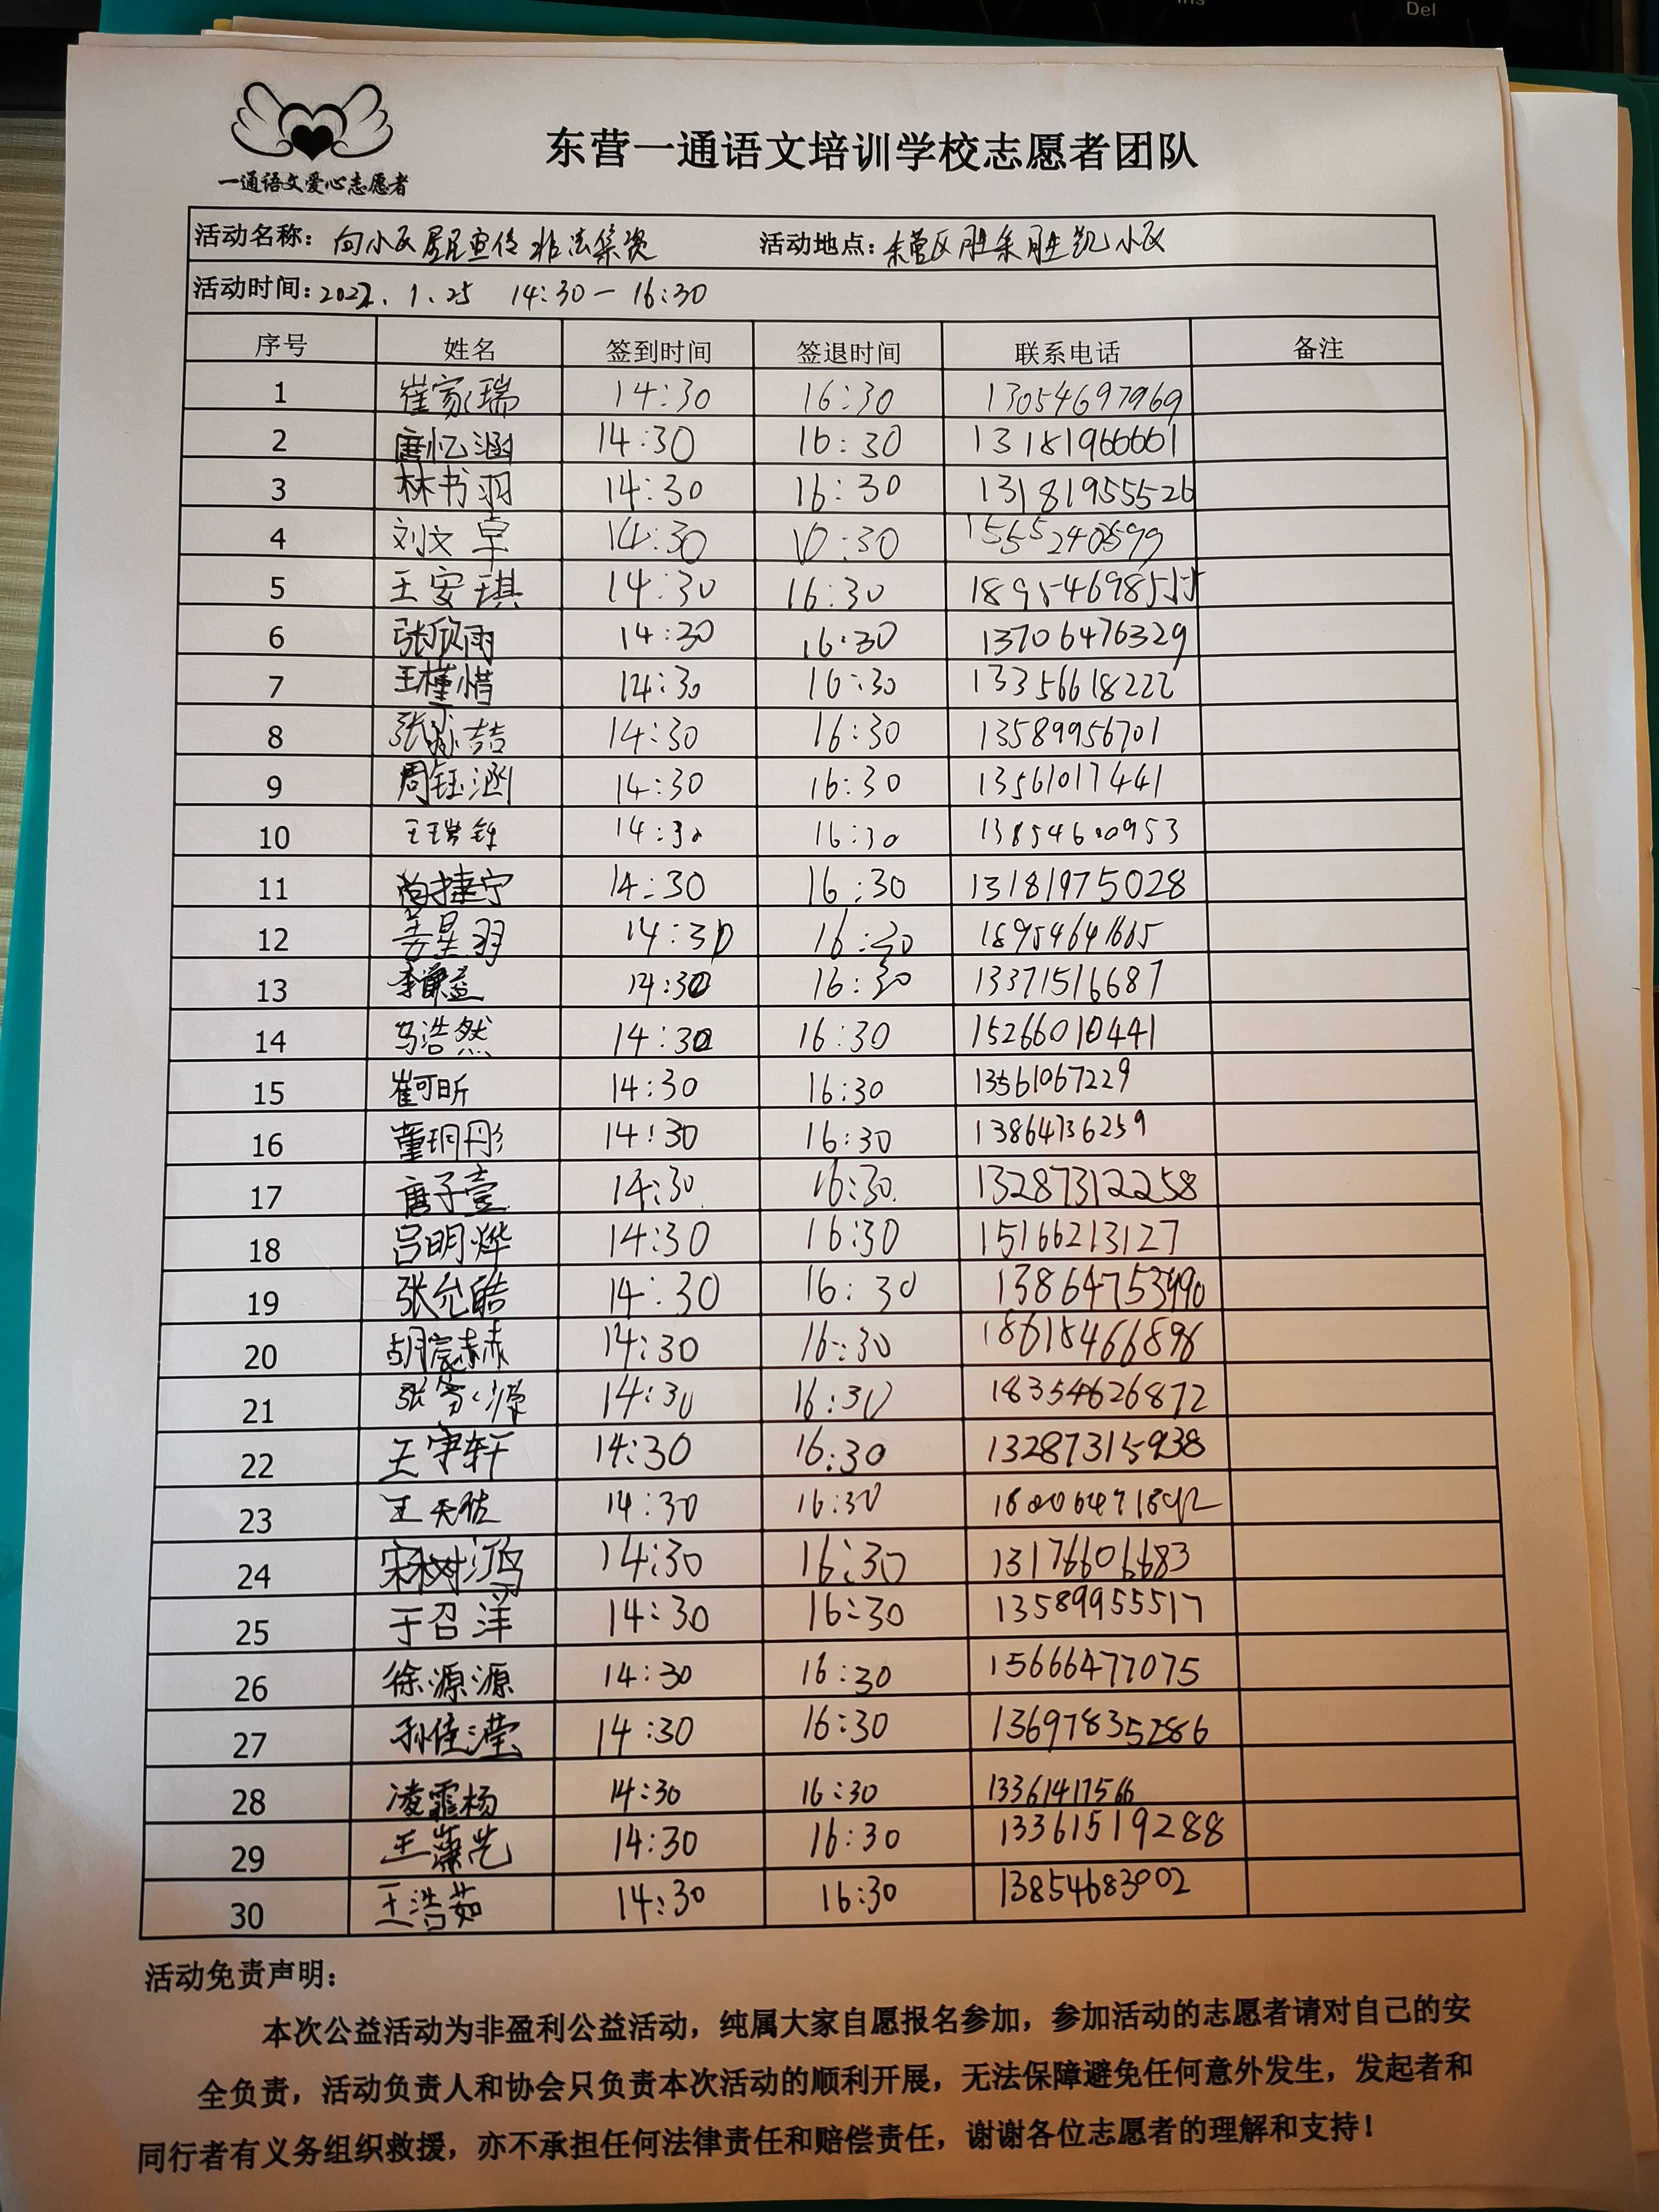 Ins
Del
一通语文爱心志愿者
东营一通语文培训学校志愿者团队
活动名称：向小区居民宣传非法集资 活动地点：东营区胜采胜凯小区
活动时间：2022.1.25 14:30－16:30
序号 姓名 签到时间 签退时间 联系电话 备注
1 崔家瑞 14:30 16:30 13054697969
2 唐忆涵 14:30 16:30 13181966661
3 林书羽 14:30 16:30 13181955526
4 刘文卓 14:30 16:30 15552408599
5 王安琪 14:30 16:30 18954698555
6 张欣雨 14:30 16:30 13706476329
7 王槿惜 14:30 16:30 13356618222
8 14:30 16:30 13589956701
9 周钰涵 14:30 16:30 13561017441
10 14:30 16:30 13854600953
11 尚捷宁 14:30 16:30 13181975028
12 姜星羽 14:30 16:30
13 14:30 16:30 13371516687
14 马浩然 14:30 16:30 15266010441
15 崔可昕 14:30 16:30 13561067229
16 董玥彤 14:30 16:30 13864736259
17 唐子壹 14:30 16:30 13287312258
18 吕明烨 14:30 16:30 15166213127
19 张允皓 14:30 16:30 13864753990
20 胡宸赫 14:30 16:30 18618466896
21 14:30 16:30 18354626872
22 王宇轩 14:30 16:30 13287315938
23 王天佑 14:30 16:30
24 宋树鸿 14:30 16:30 13176606683
25 于召洋 14:30 16:30 13589955517
26 徐源源 14:30 16:30 15666477075
27 孙佳滢 14:30 16:30 13697835286
28 凌霏杨 14:30 16:30 13361417566
29 14:30 16:30 13361519288
30 王浩茹 14:30 16:30 13854683002
活动免责声明：
本次公益活动为非盈利公益活动，纯属大家自愿报名参加，参加活动的志愿者请对自己的安
全负责，活动负责人和协会只负责本次活动的顺利开展，无法保障避免任何意外发生，发起者和
同行者有义务组织救援，亦不承担任何法律责任和赔偿责任，谢谢各位志愿者的理解和支持！